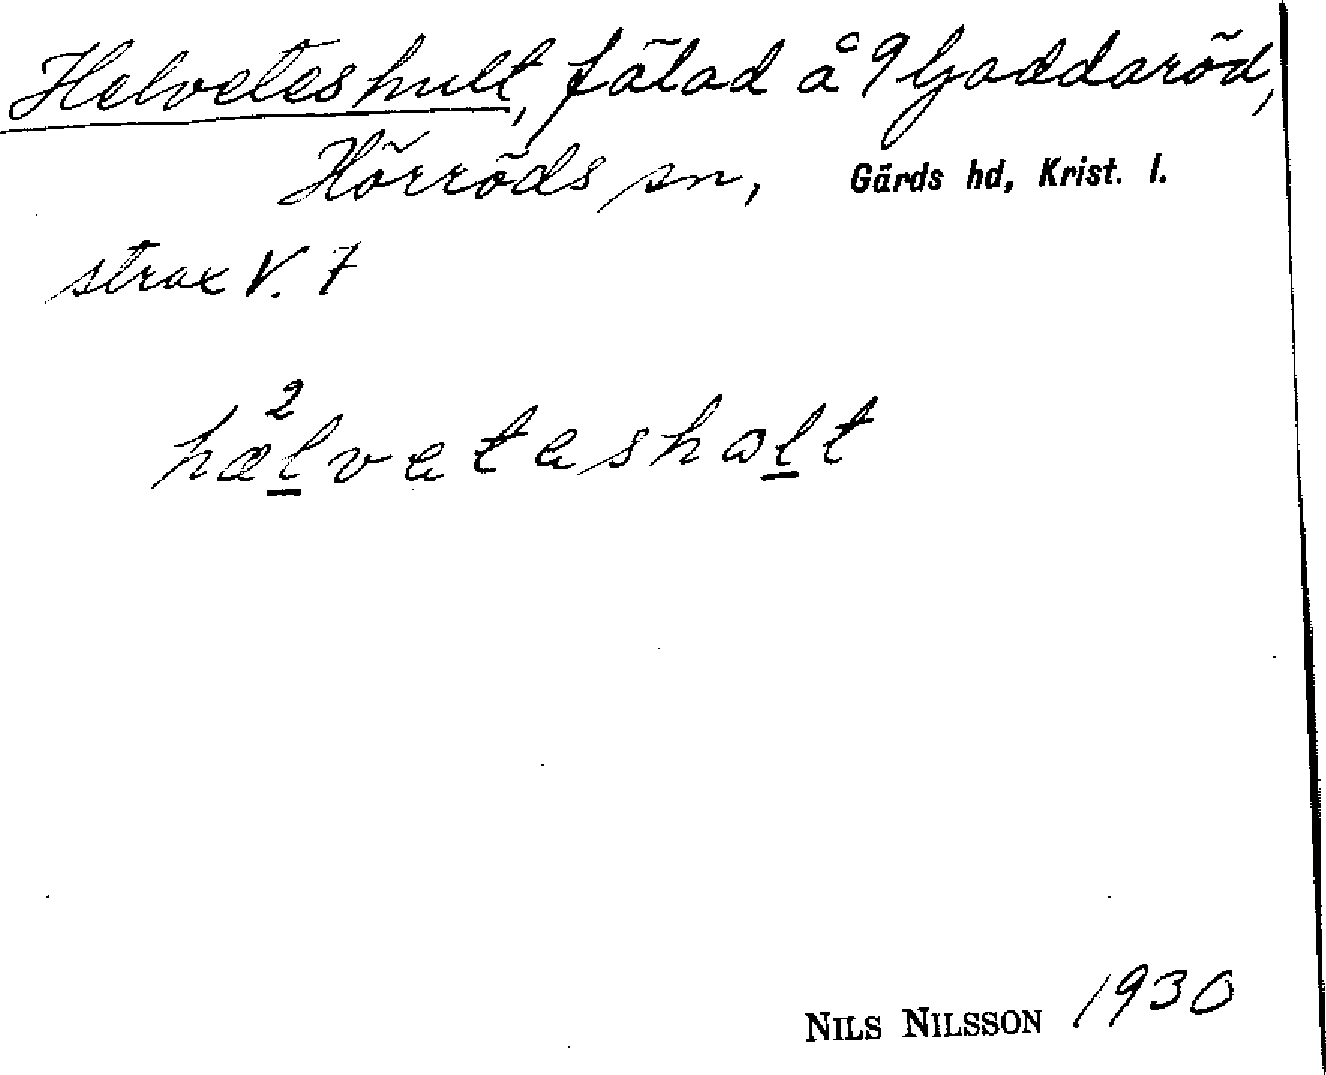 Helveteshult, fälad å 9 Gaddaröd,
Hörröds sn, Gärds hd, Krist. l.
strax V. 7
2
hælvetashalt
NILS NILSSON 1930